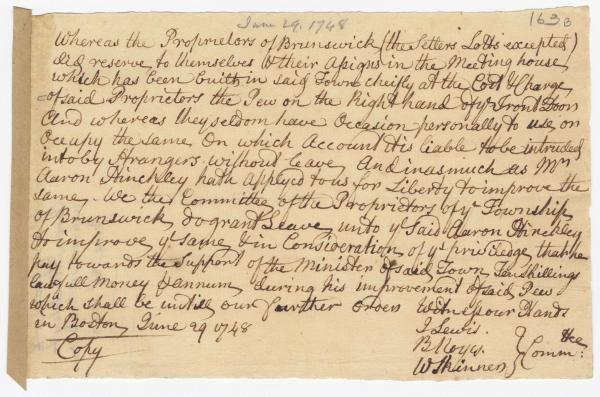 June 29, 1748
163 B
Whereas the Proprietors of Brunswick (the Setters Lotts excepted)
did reserve to themselves & their Assigns in the Meeting house
which has been built in said Town cheifly at the Cost & Charge
of said Proprietors the Pew on the Right hand of ye Front Door
And whereas they seldom have Occasion personally to use or
Occupy the same On which Account it is liable to be intruded
into by Strangers without leave And in as much as Mr
Aaron Hinckley hath applyed to us for Liberty to improve the
same. We the Committee of the Proprietors of ye Township
of Brunswick do grant Leave unto ye Said Aaron Hinckley
to improve ye same & in Consideration of ye priviledge that he
pay towards the Support of the Minister of said Town Ten Shillings
lawfull Money annum during his improvement of said Pew
which shall be untill our further Orders Witness our Hands
in Boston June 29 1748
J Lewis.
B Noyes.
W Skinner
Commttee:
Copy